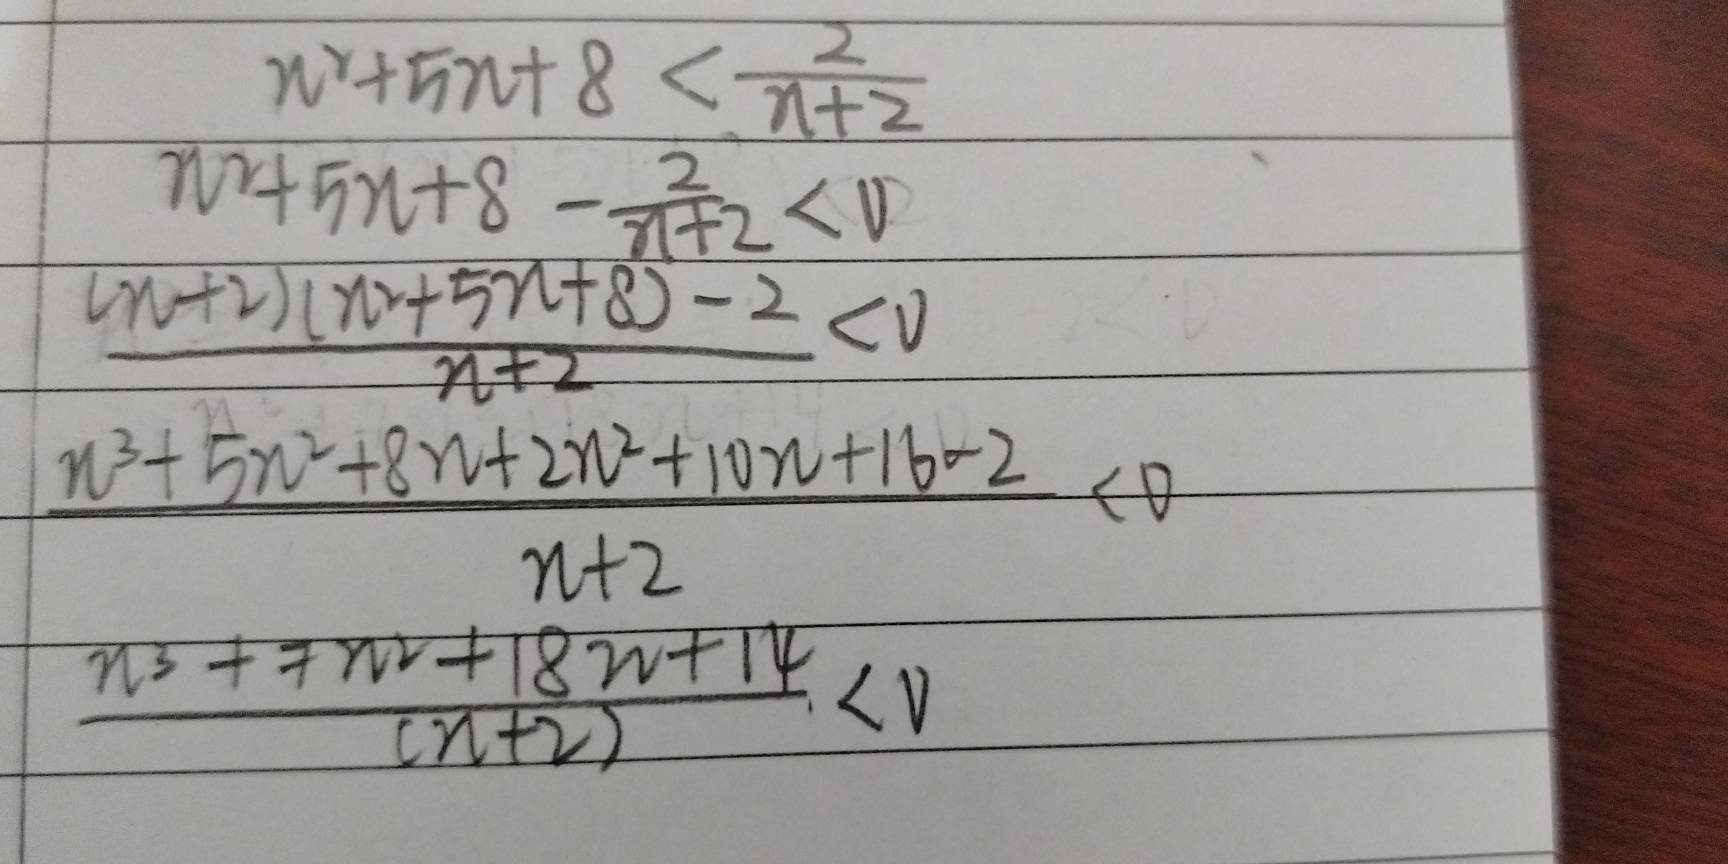 x²+5x+8 < 2/(x+2)
x²+5x+8 - 2/(x+2) <0
((x+2)(x²+5x+8)-2)/(x+2) <0
(x³+5x²+8x+2x²+10x+16-2)/(x+2) <0
(x³+7x²+18x+14)/((x+2)) <0